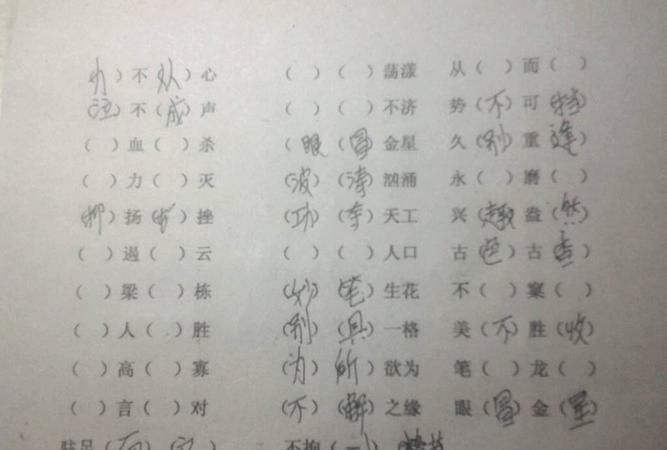 (力)不(从)心 ( )( )荡漾 从( )而( )
(泣)不(成)声 ( )( )不济 势(不)可(挡)
( )血( )杀 (眼)(冒)金星 久(别)重(逢)
( )力( )灭 (波)(涛)汹涌 永( )磨( )
(抑)扬( )挫 (功)(夺)天工 兴(趣)盎(然)
( )遏( )云 ( )( )人口 古(色)古(香)
( )梁( )栋 (妙)(笔)生花 不( )窠( )
( )人( )胜 (别)(具)一格 美(不)胜(收)
( )高( )寡 (为)(所)欲为 笔( )龙( )
( )言( )对 (不)(解)之缘 眼(冒)金(星)
驻足 不拘(一)